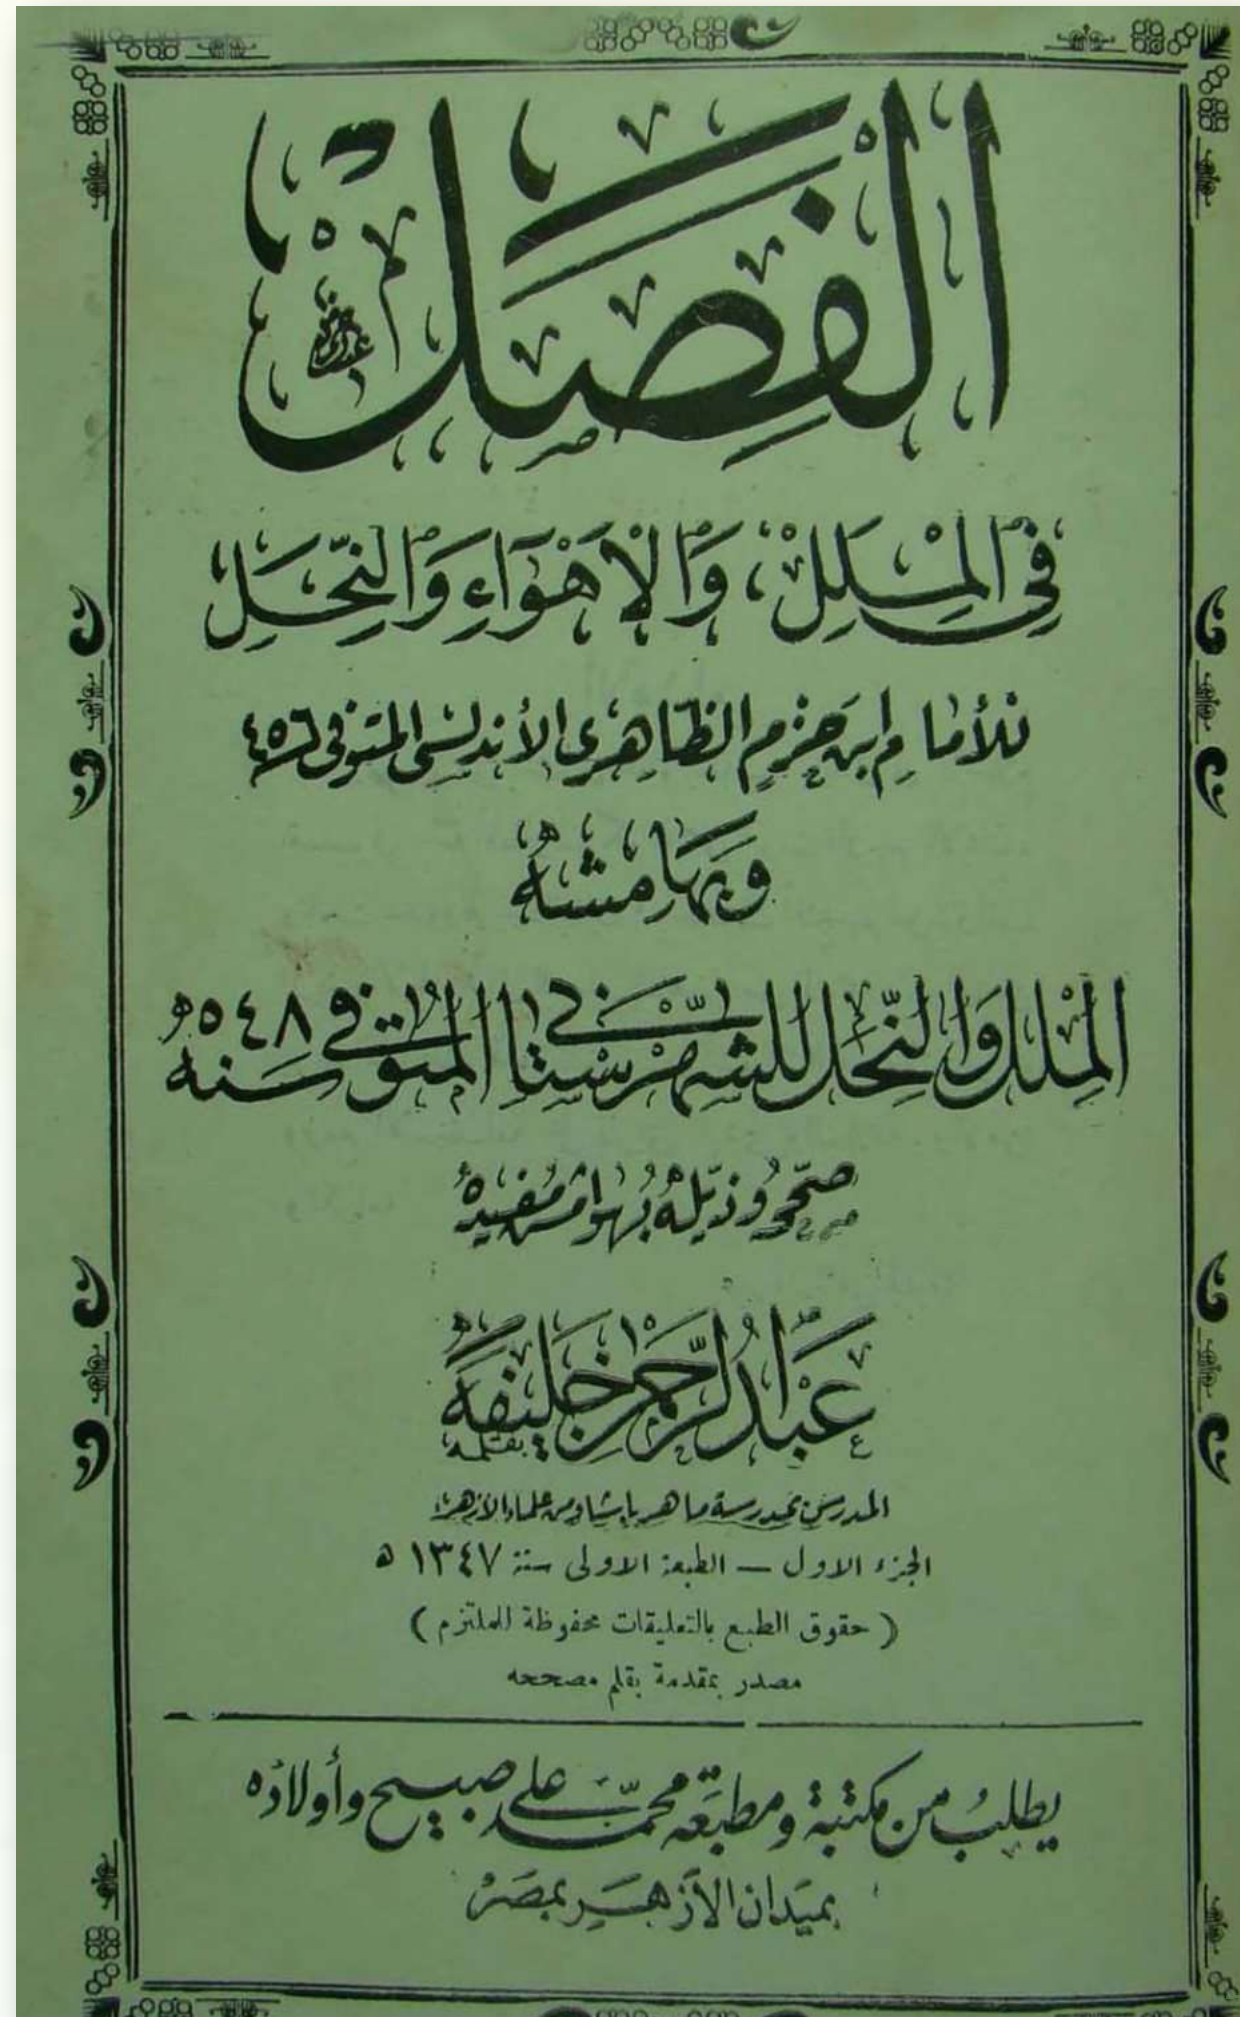 الْفِصَلْ
فِي الْمِلَلِ، وَالْأَهْوَآءِ وَالنِّحَلِ
للأمامِ ابن حَزْمٍ الظّاهِرِي الأندلسى المتوفى ٤٥٦
وَبِهَامِشْهُ
الْمِلَلُ وَالنِّحَلُ لِلشَّهْرِسْتَانِي الْمُتَوَفِي سَنَة ٥٤٨ هـ
صححهُ وذيّلهُ بهوامش مُفيده
عَبْدُ الرَّحْمنِ خَلِيفَة
المدرس بمدرسة ماهر باشا ومن علماء الازهر
الجزء الاول — الطبعة الاولى سنة ١٣٤٧ ه
( حقوق الطبع بالتعليقات محفوظة للملتزم )
مصدر بمقدمة بقلم مصححه
يطلبُ من مكتبة ومطبعَة محمّد على صبيح وأولادُه
بمَيدَان الأَزهَر بمصرْ